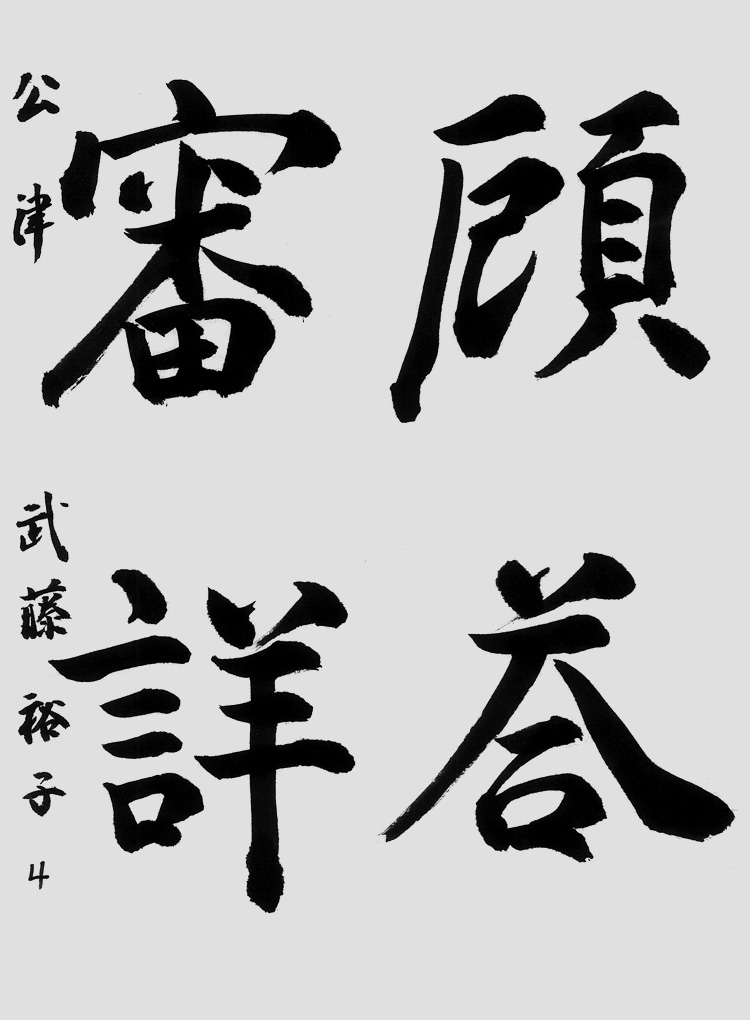 顧答
審詳
公津 武藤裕子 4